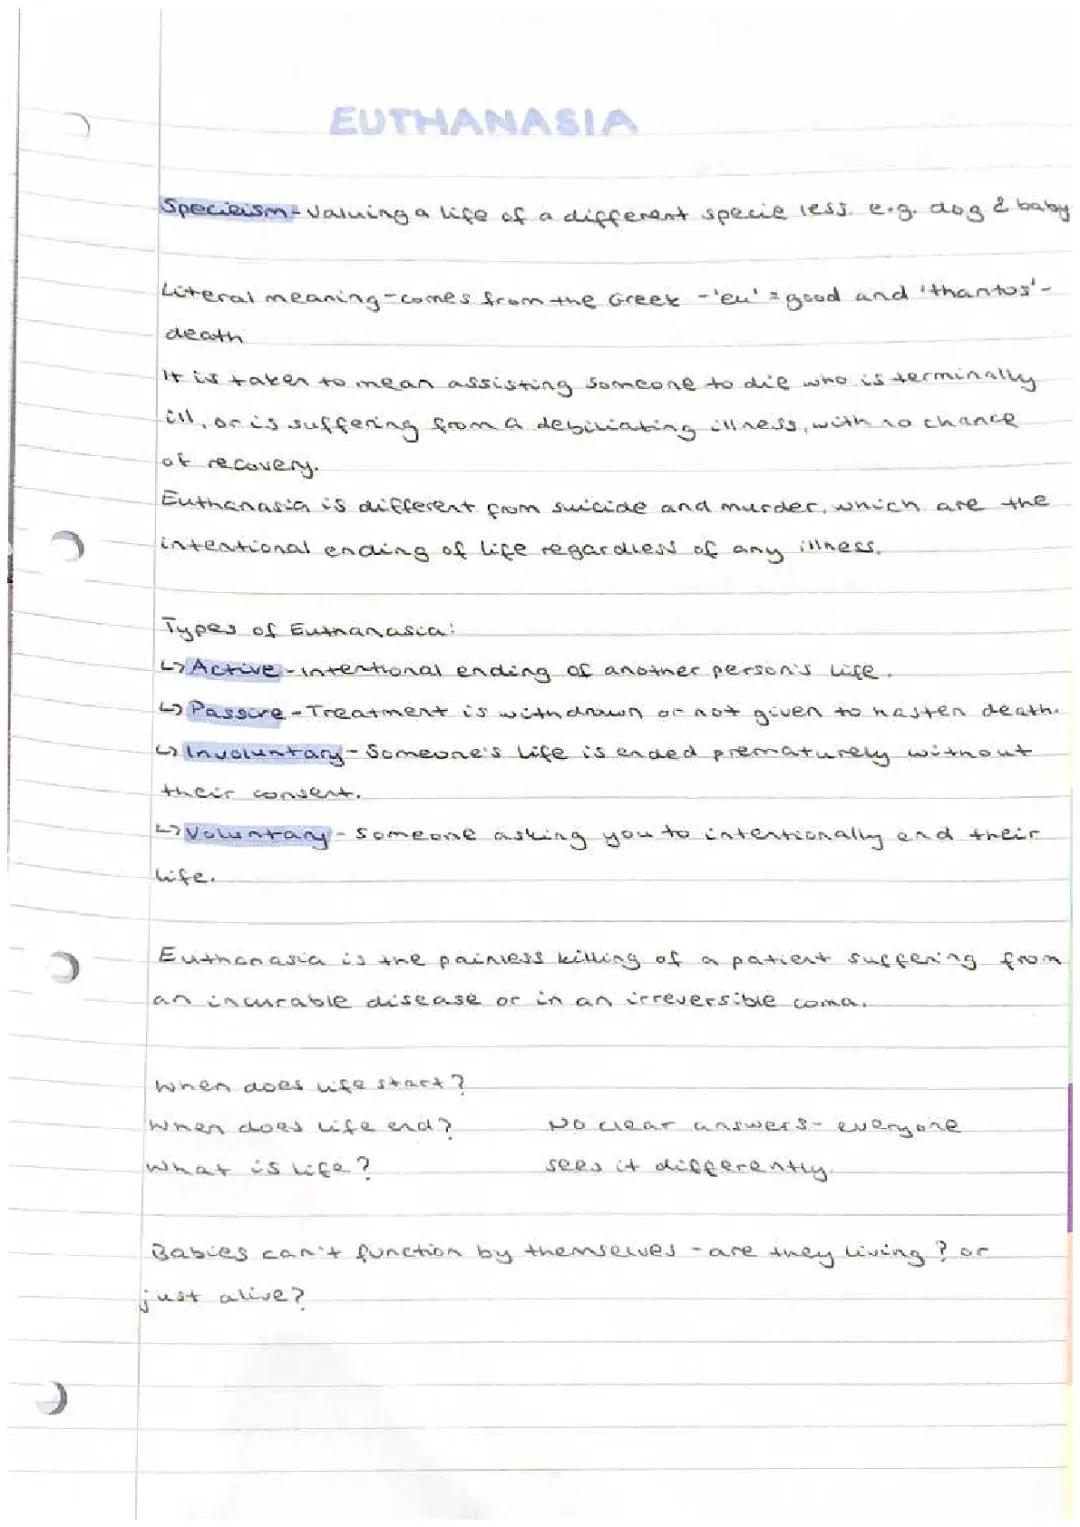 EUTHANASIA
Specieism - Valuing a life of a different specie less. e.g. dog & baby
Literal meaning - comes from the Greek - 'eu' = good and 'thantos' -
death
It is taken to mean assisting someone to die who is terminally
ill, or is suffering from a debiliating illness, with no chance
of recovery.
Euthanasia is different from suicide and murder, which are the
intentional ending of life regardless of any illness.
Types of Euthanasia:
↳ Active - intentional ending of another person's life.
↳ Passive - Treatment is withdrawn or not given to hasten death.
↳ Involuntary - Someone's life is ended prematurely without
their consent.
↳ Voluntary - Someone asking you to intentionally end their
life.
Euthanasia is the painless killing of a patient suffering from
an incurable disease or in an irreversible coma.
When does life start?
When does life end? No clear answers - everyone
What is life? sees it differently.
Babies can't function by themselves - are they living? or
just alive?